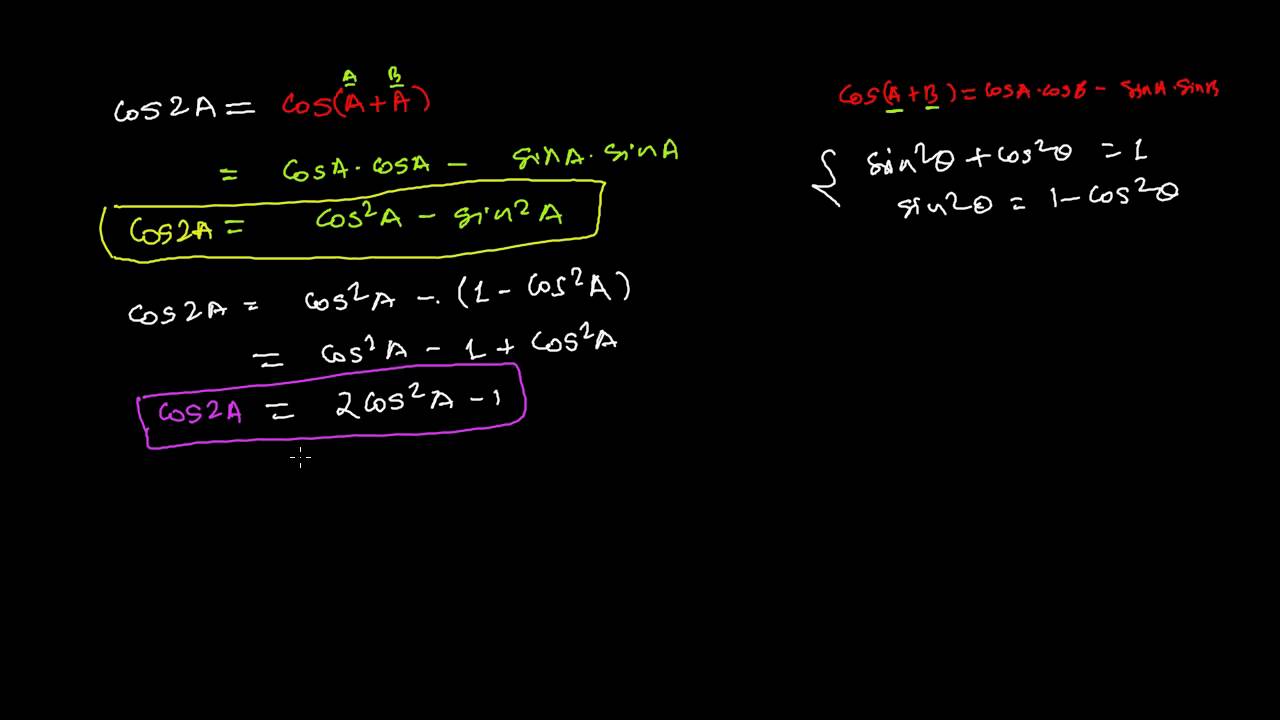 A B
cos2A = cos(A+A)
= cosA·cosA − sinA·sinA
cos2A = cos²A − sin²A
cos2A = cos²A − (1 − cos²A)
= cos²A − 1 + cos²A
cos2A = 2cos²A − 1
cos(A+B) = cosA·cosB − sinA·sinB
{ sin²θ + cos²θ = 1
sin²θ = 1 − cos²θ